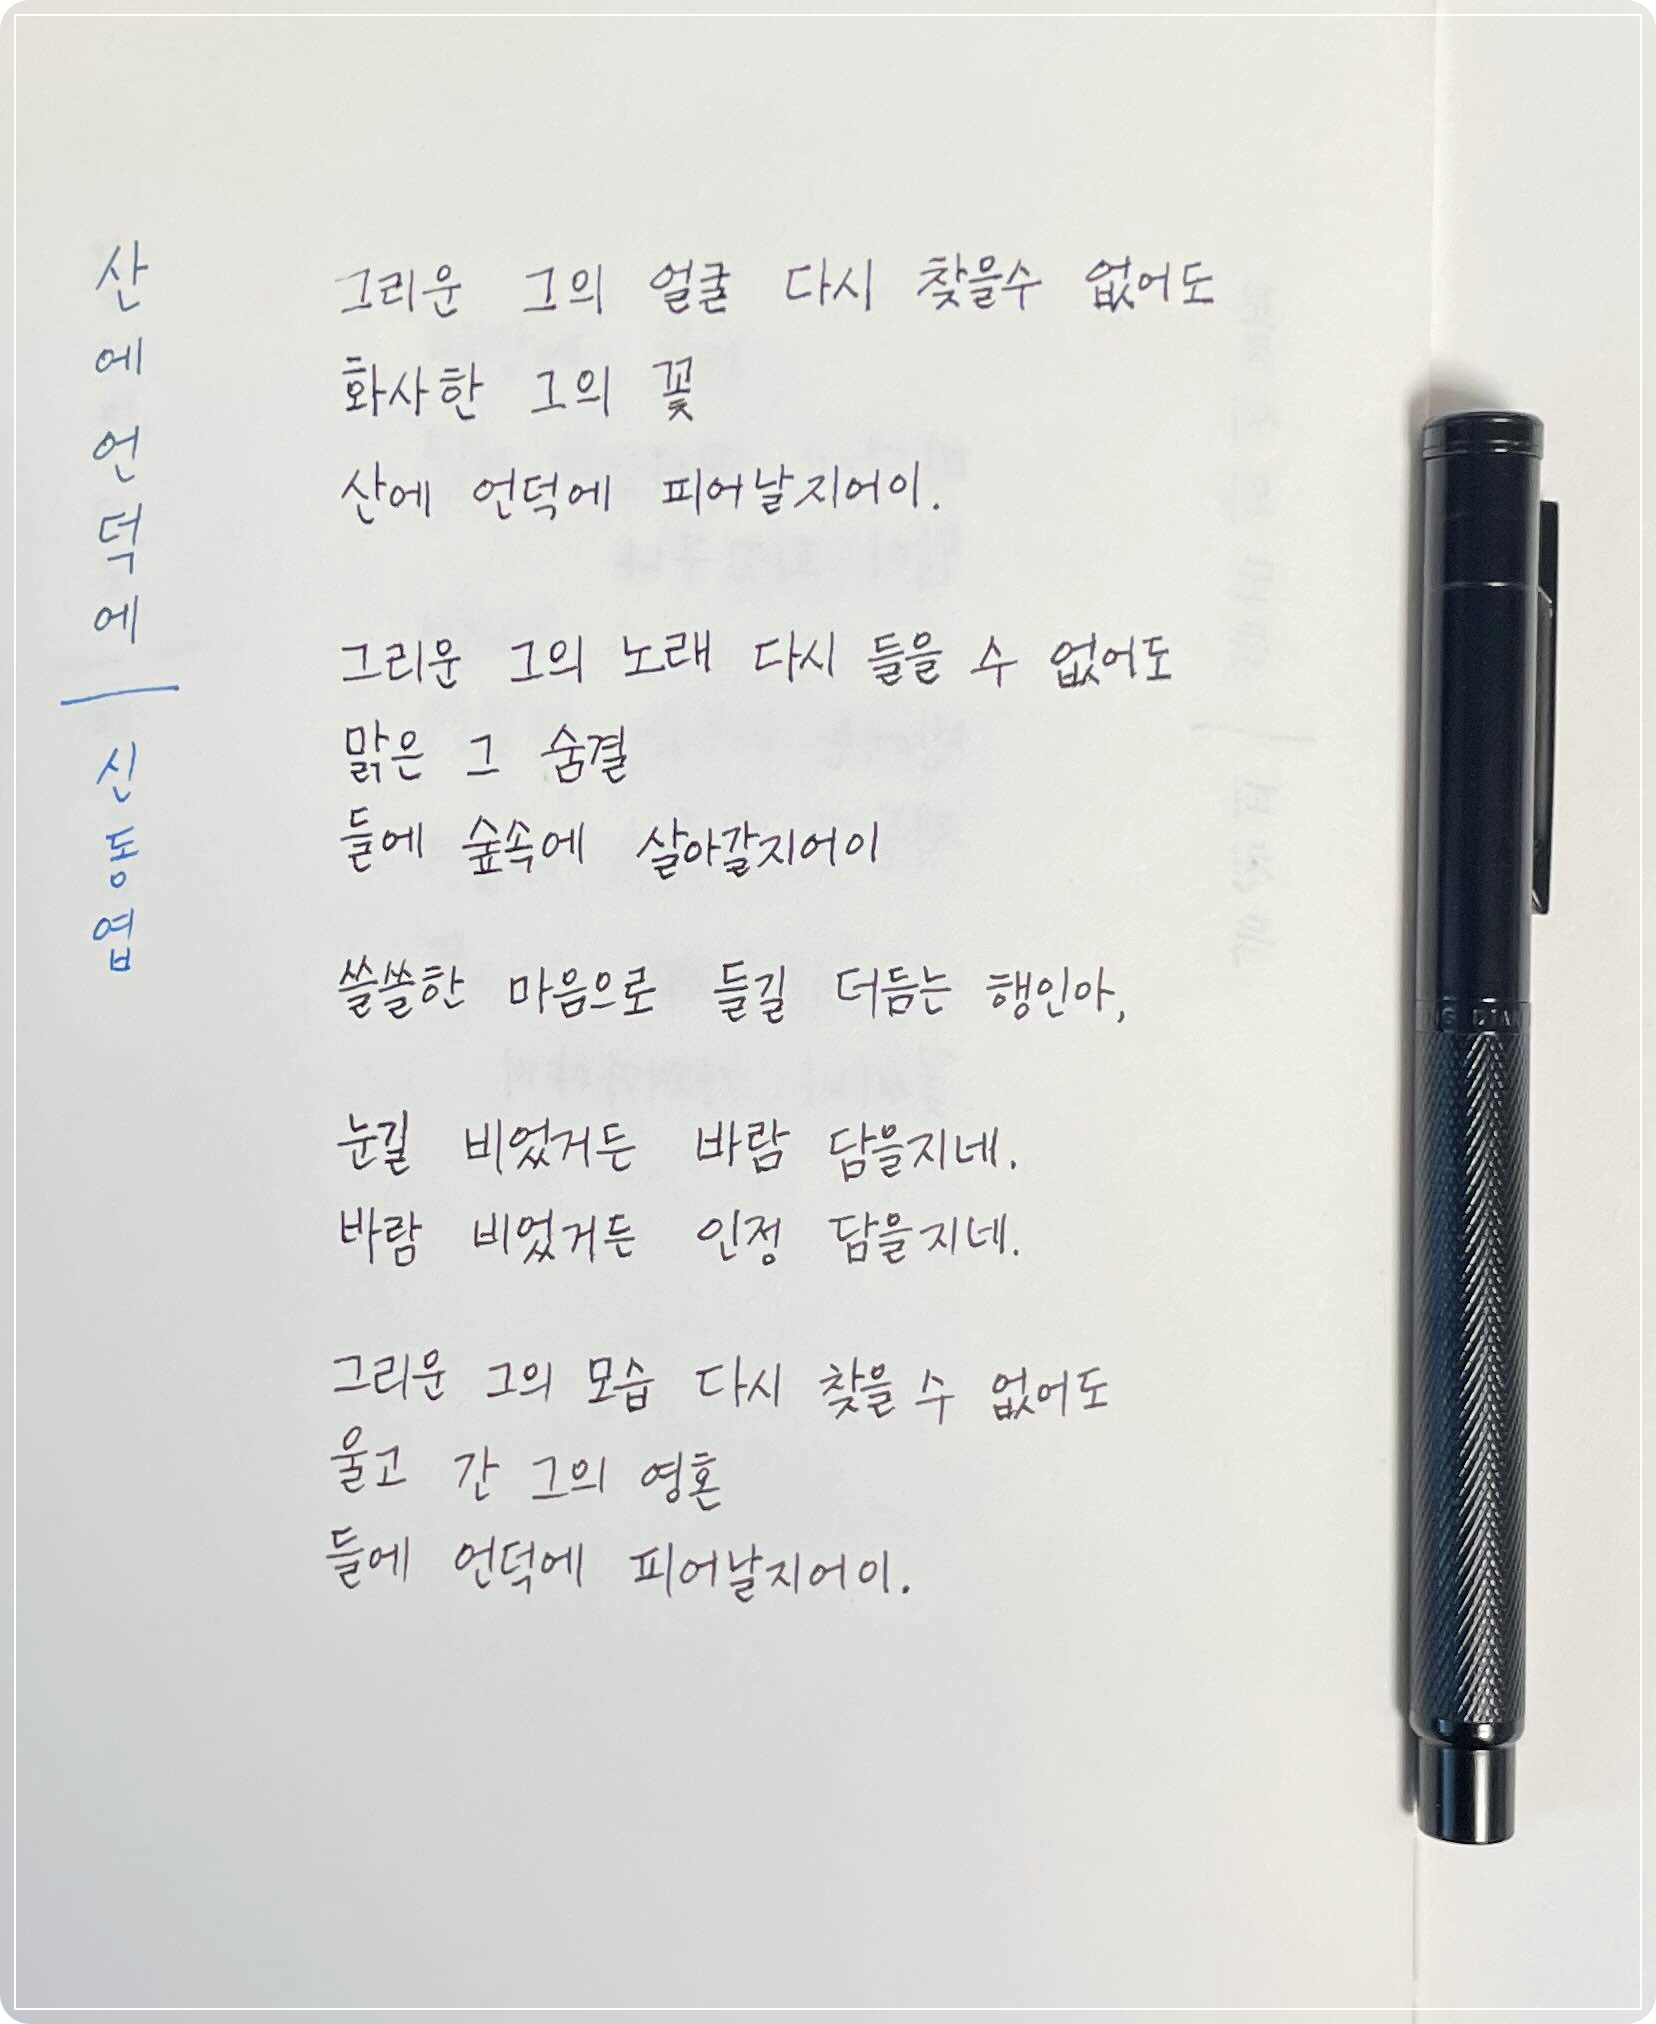 산에 언덕에
신동엽
그리운 그의 얼굴 다시 찾을수 없어도
화사한 그의 꽃
산에 언덕에 피어날지어이.
그리운 그의 노래 다시 들을 수 없어도
맑은 그 숨결
들에 숲속에 살아갈지어이
쓸쓸한 마음으로 들길 더듬는 행인아,
눈길 비었거든 바람 담을지네.
바람 비었거든 인정 담을지네.
그리운 그의 모습 다시 찾을 수 없어도
울고 간 그의 영혼
들에 언덕에 피어날지어이.